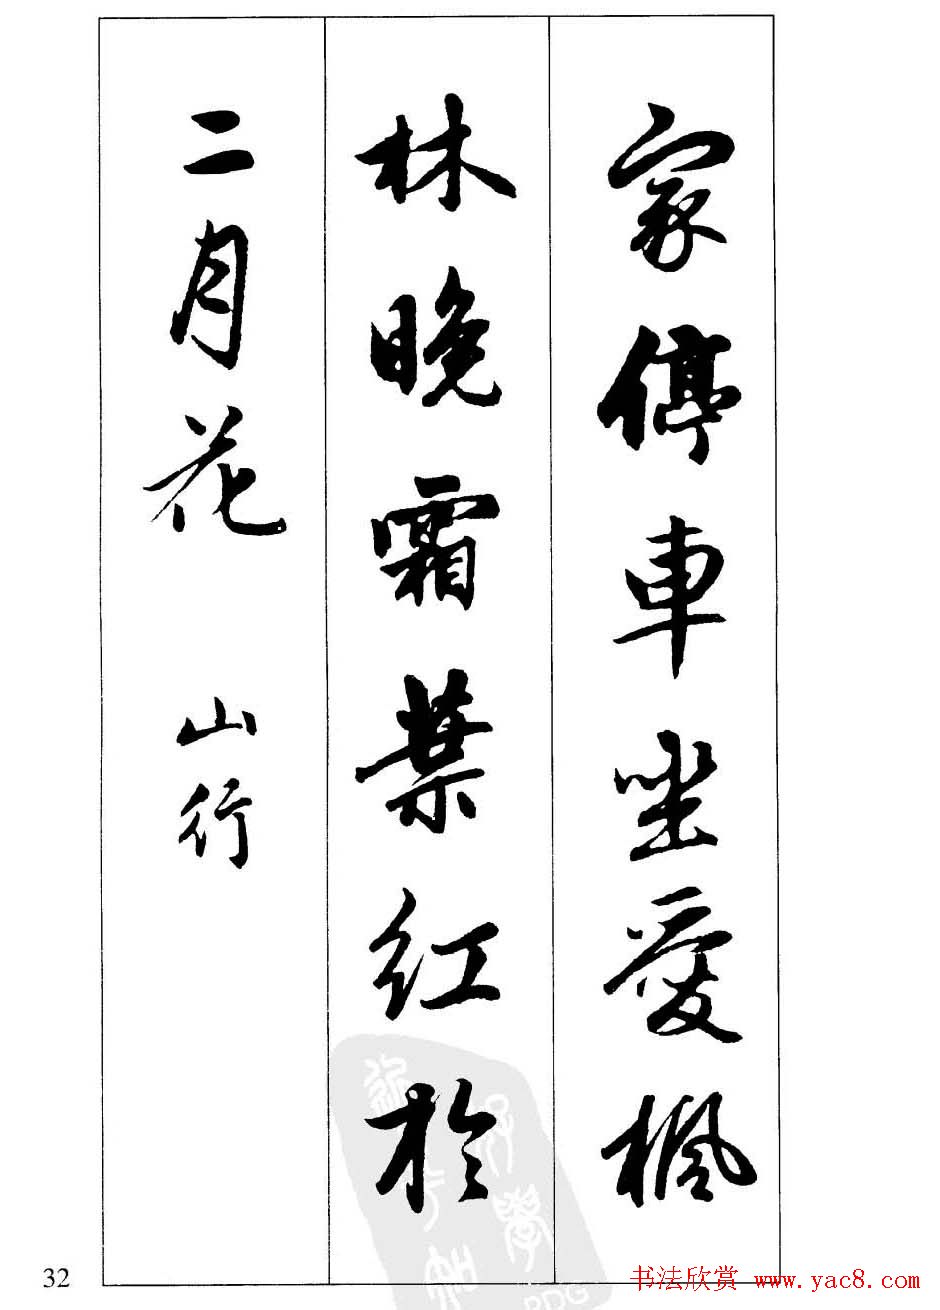 家停車坐愛楓
林晚霜葉红於
二月花 山行
32
书法欣赏 www.yac8.com